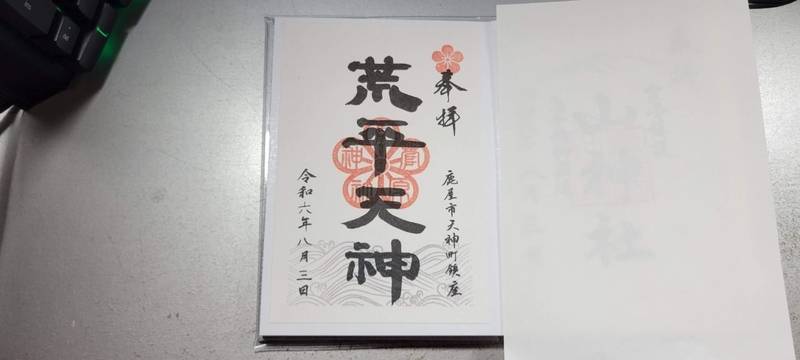 奉拝
鹿屋市天神町鎮座
荒平天神
令和六年八月三日